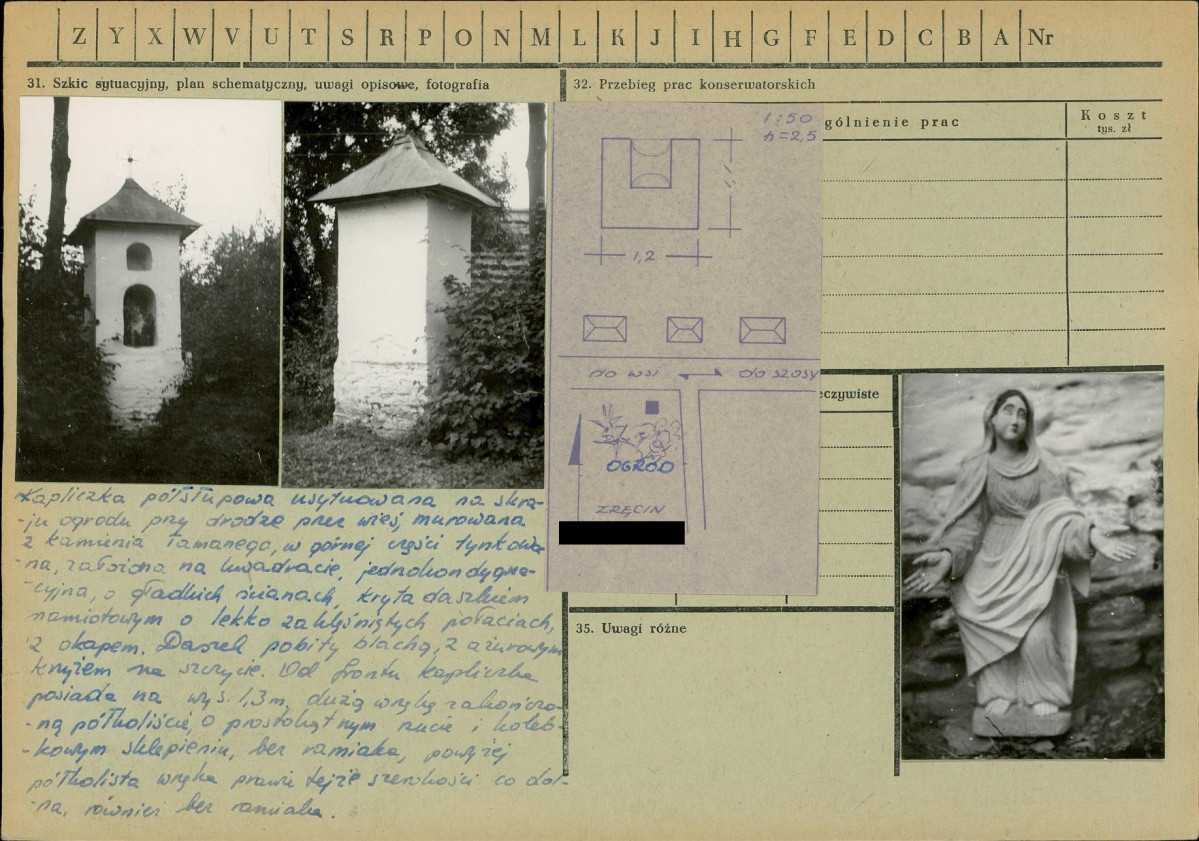 Z Y X W V U T S R P O N M L K J I H G F E D C B A Nr
31. Szkic sytuacyjny, plan schematyczny, uwagi opisowe, fotografia
Kapliczka półsłupowa usytuowana na skra-
-ju ogrodu przy drodze przez wieś, murowana
z kamienia łamanego, w górnej części tynkowa-
-na, założona na kwadracie, jednokondygna-
-cyjna, o gładkich ścianach, kryta daszkiem
namiotowym o lekko zaklęśniętych połaciach,
z okapem. Daszek pobity blachą, z ażurowym
krzyżem na szczycie. Od frontu kapliczka
posiada na wys. 1,3 m, dużą wnękę zakończo-
-ną półkoliście, o prostokątnym rzucie i koleb-
-kowym sklepieniu, bez ramiaka, powyżej
półkolista wnęka prawie tejże szerokości co dol-
-na, również bez ramiaka.
32. Przebieg prac konserwatorskich
1:50
h=2,5
1,1
1,2
do wsi do szosy
OGRÓD
ZRĘCIN
gólnienie prac
Koszt
tys. zł
eczywiste
35. Uwagi różne